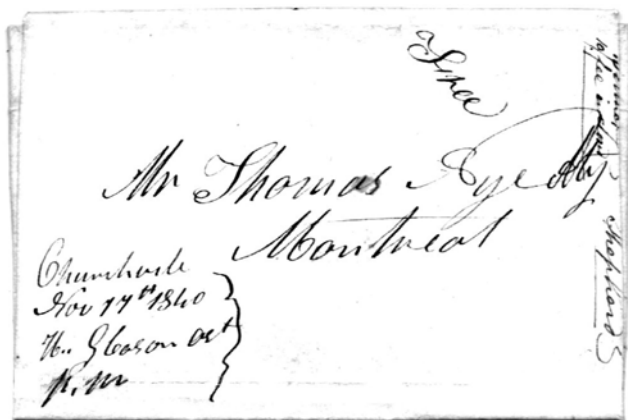 Free
Mr Thomas Nye Atty
Montreal
Nov 17th 1840
H. Gleason act
P. M
Shephard